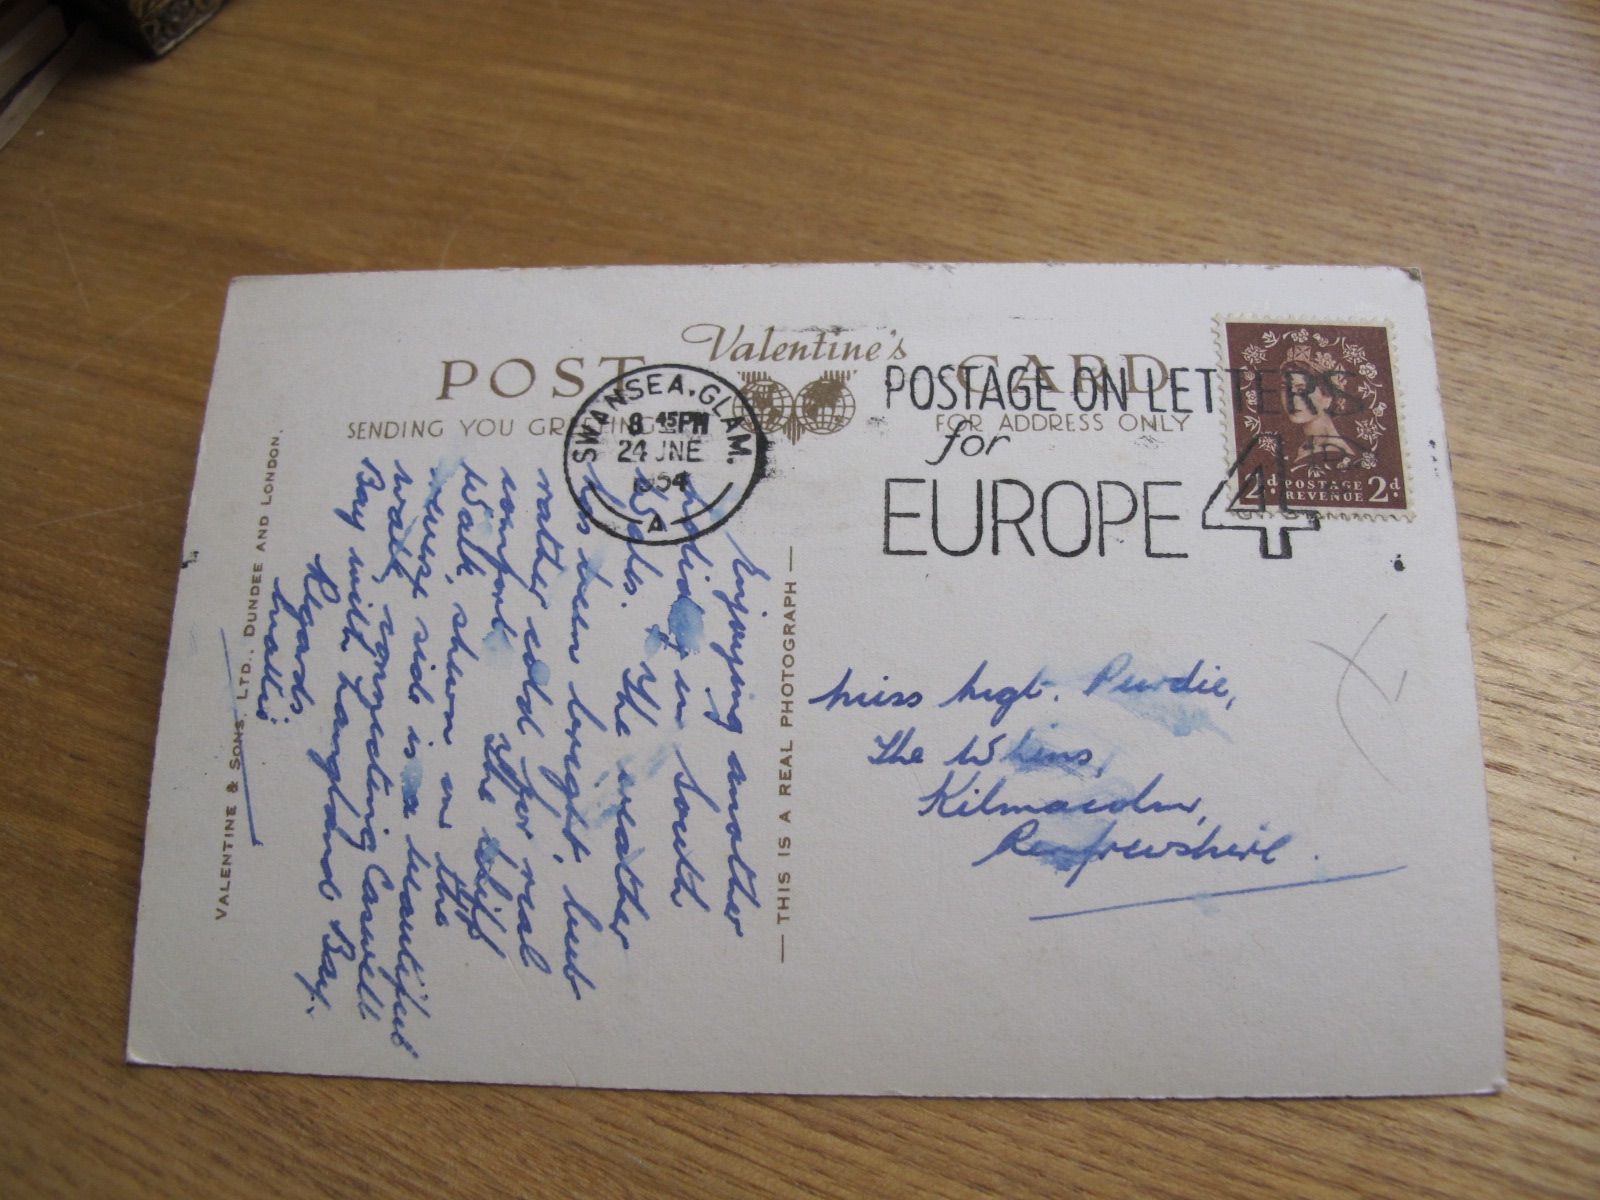 Valentine's
POST CARD
SENDING YOU GREETINGS
FOR ADDRESS ONLY
SWANSEA. GLAM.
8 45 PM
24 JNE
1954
A
POSTAGE ON LETTERS
for
EUROPE 4D
2d POSTAGE REVENUE 2d
Enjoying another
holiday in South
Wales. The weather
has been bright, but
rather cold for real
comfort. The Cliff
Walk, shown on the
reverse side is a beautiful
walk, connecting Caswell
Bay with Langland Bay.
Regards,
Miss Mgt. Purdie,
The Whins,
Kilmacolm,
Renfrewshire.
— THIS IS A REAL PHOTOGRAPH —
VALENTINE & SONS, LTD., DUNDEE AND LONDON.